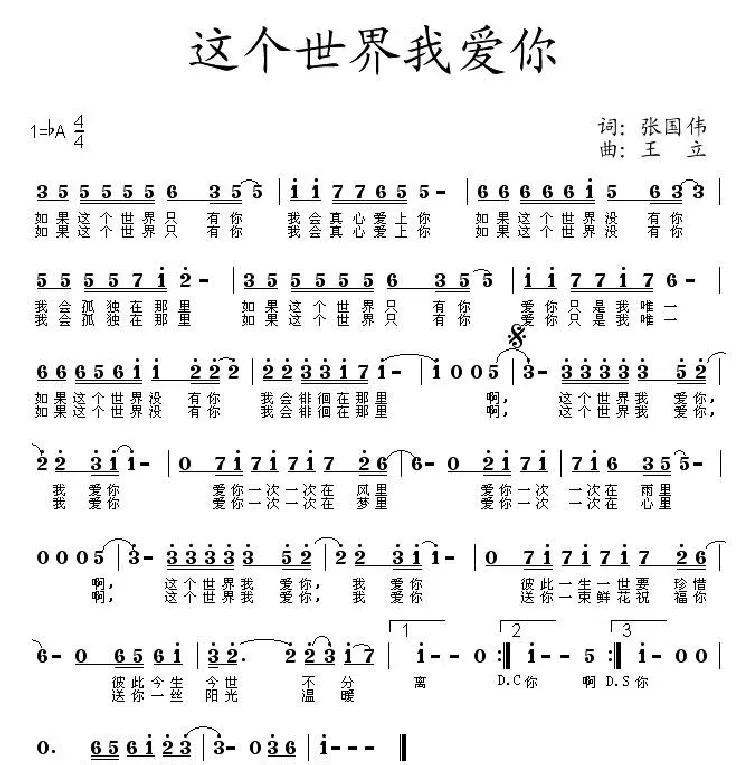 这个世界我爱你
1=♭A 4/4
词: 张国伟
曲: 王 立
3 5 5 5 5 5 6 3 5 5 | i i 7 7 6 5 5 - | 6 6 6 6 6 i 5 6 3 3 |
如果这个世界只 有你 我会真心爱上你 如果这个世界没 有你
如果这个世界只 有你 我会真心爱上你 如果这个世界没 有你
5 5 5 5 7 i 2 - | 3 5 5 5 5 5 6 3 5 5 | i i 7 7 i 7 6 - |
我会孤独在那里 如果这个世界只 有你 爱你只是我唯一
我会孤独在那里 如果这个世界只 有你 爱你只是我唯一
6 6 6 5 6 i i 2 2 2 | 2 2 3 3 i 7 i - | i 0 0 5 | 3 - 3 3 3 3 5 2 |
如果这个世界没 有你 我会徘徊在那里 啊, 这个世界我 爱你,
如果这个世界没 有你 我会徘徊在那里 啊, 这个世界我 爱你,
2 2 3 i i - | 0 7 i 7 i 7 i 7 2 6 | 6 - 0 2 i 7 i | 7 i 7 6 3 5 5 - |
我 爱你 爱你一次一次在 风里 爱你一次 一次在 雨里
我 爱你 爱你一次一次在 梦里 爱你一次 一次在 心里
0 0 0 5 | 3 - 3 3 3 3 5 2 | 2 2 3 i i - | 0 7 i 7 i 7 i 7 2 6 |
啊, 这个世界我 爱你, 我 爱你 彼此一生一世要 珍惜
啊, 这个世界我 爱你, 我 爱你 送你一束鲜花祝 福你
6 - 0 6 5 6 i | 3 2. 2 2 3 i 7 | 1 i - 0 :| 2 i - 5 :| 3 i - 0 0 |
彼此今生 今世 不 分 离 D.C你 啊D.S你
送你一丝 阳光 温 暖
0. 6 5 6 i 2 3 | 3 - 0 3 6 | i - - - ‖